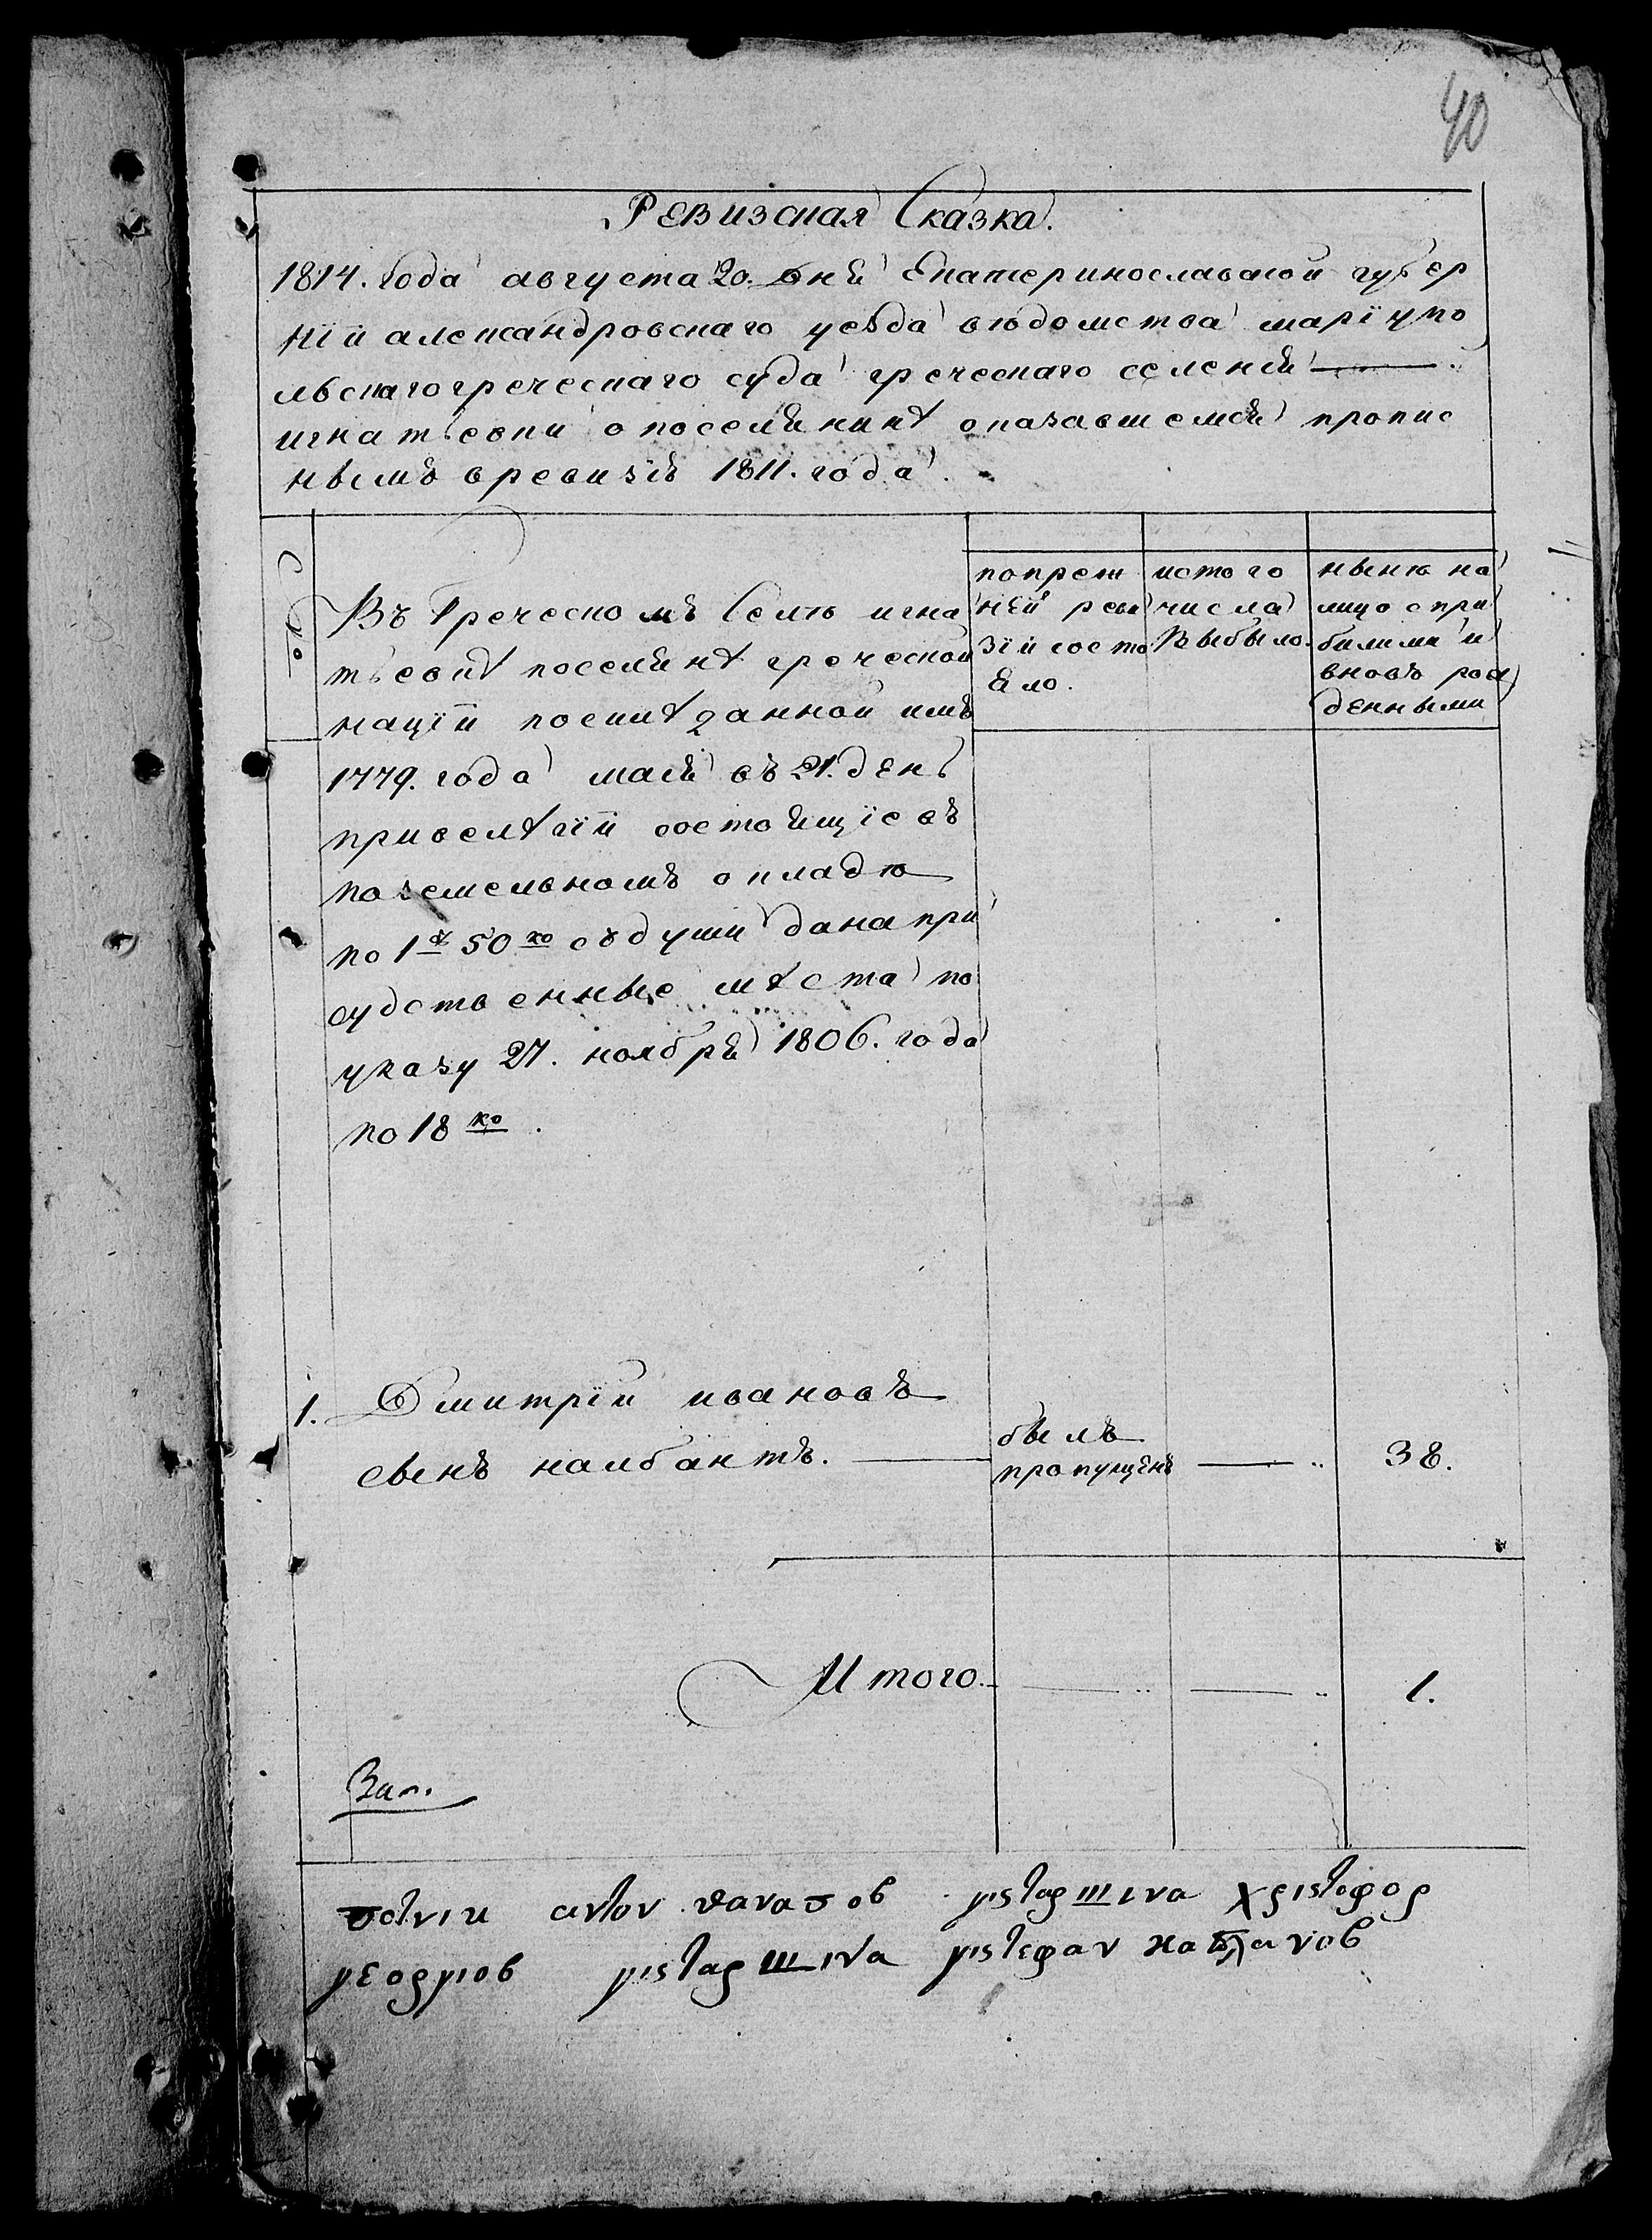 40
Ревизская Сказка.
1814. года августа 20. дня Екатеринославской губер
нїи александровскаго уезда вѣдомства марїупо
льскаго греческаго суда греческаго селенія
игнатьевки о поселянинѣ оказавшемся пропис
нымъ в ревизїи 1811. года
Въ Греческомъ Селѣ игна
тьевкѣ поселянѣ греческой
нацїи по силѣ данной имъ
1779. года маія въ 21. день
привелѣгїи состоящїе въ
поземельномъ окладѣ
по 1 50 ко съ души да на при
судственные мѣста по
указу 27. ноября 1806. года
по 18 ко.
попреж
ней реви
зїи состо
яло.
ис того
числа
выбыло.
нынѣ на
лицо с при
былыми и
вновь рож
денными
1. Дмитрїи ивановъ
сынъ налбантъ.
былъ
пропущенъ
38.
Итого.
1.
αντον θανασов γιςταρшινα χριςτοφορ
γεοργιοв γιςταρшινα γιςτεφαν